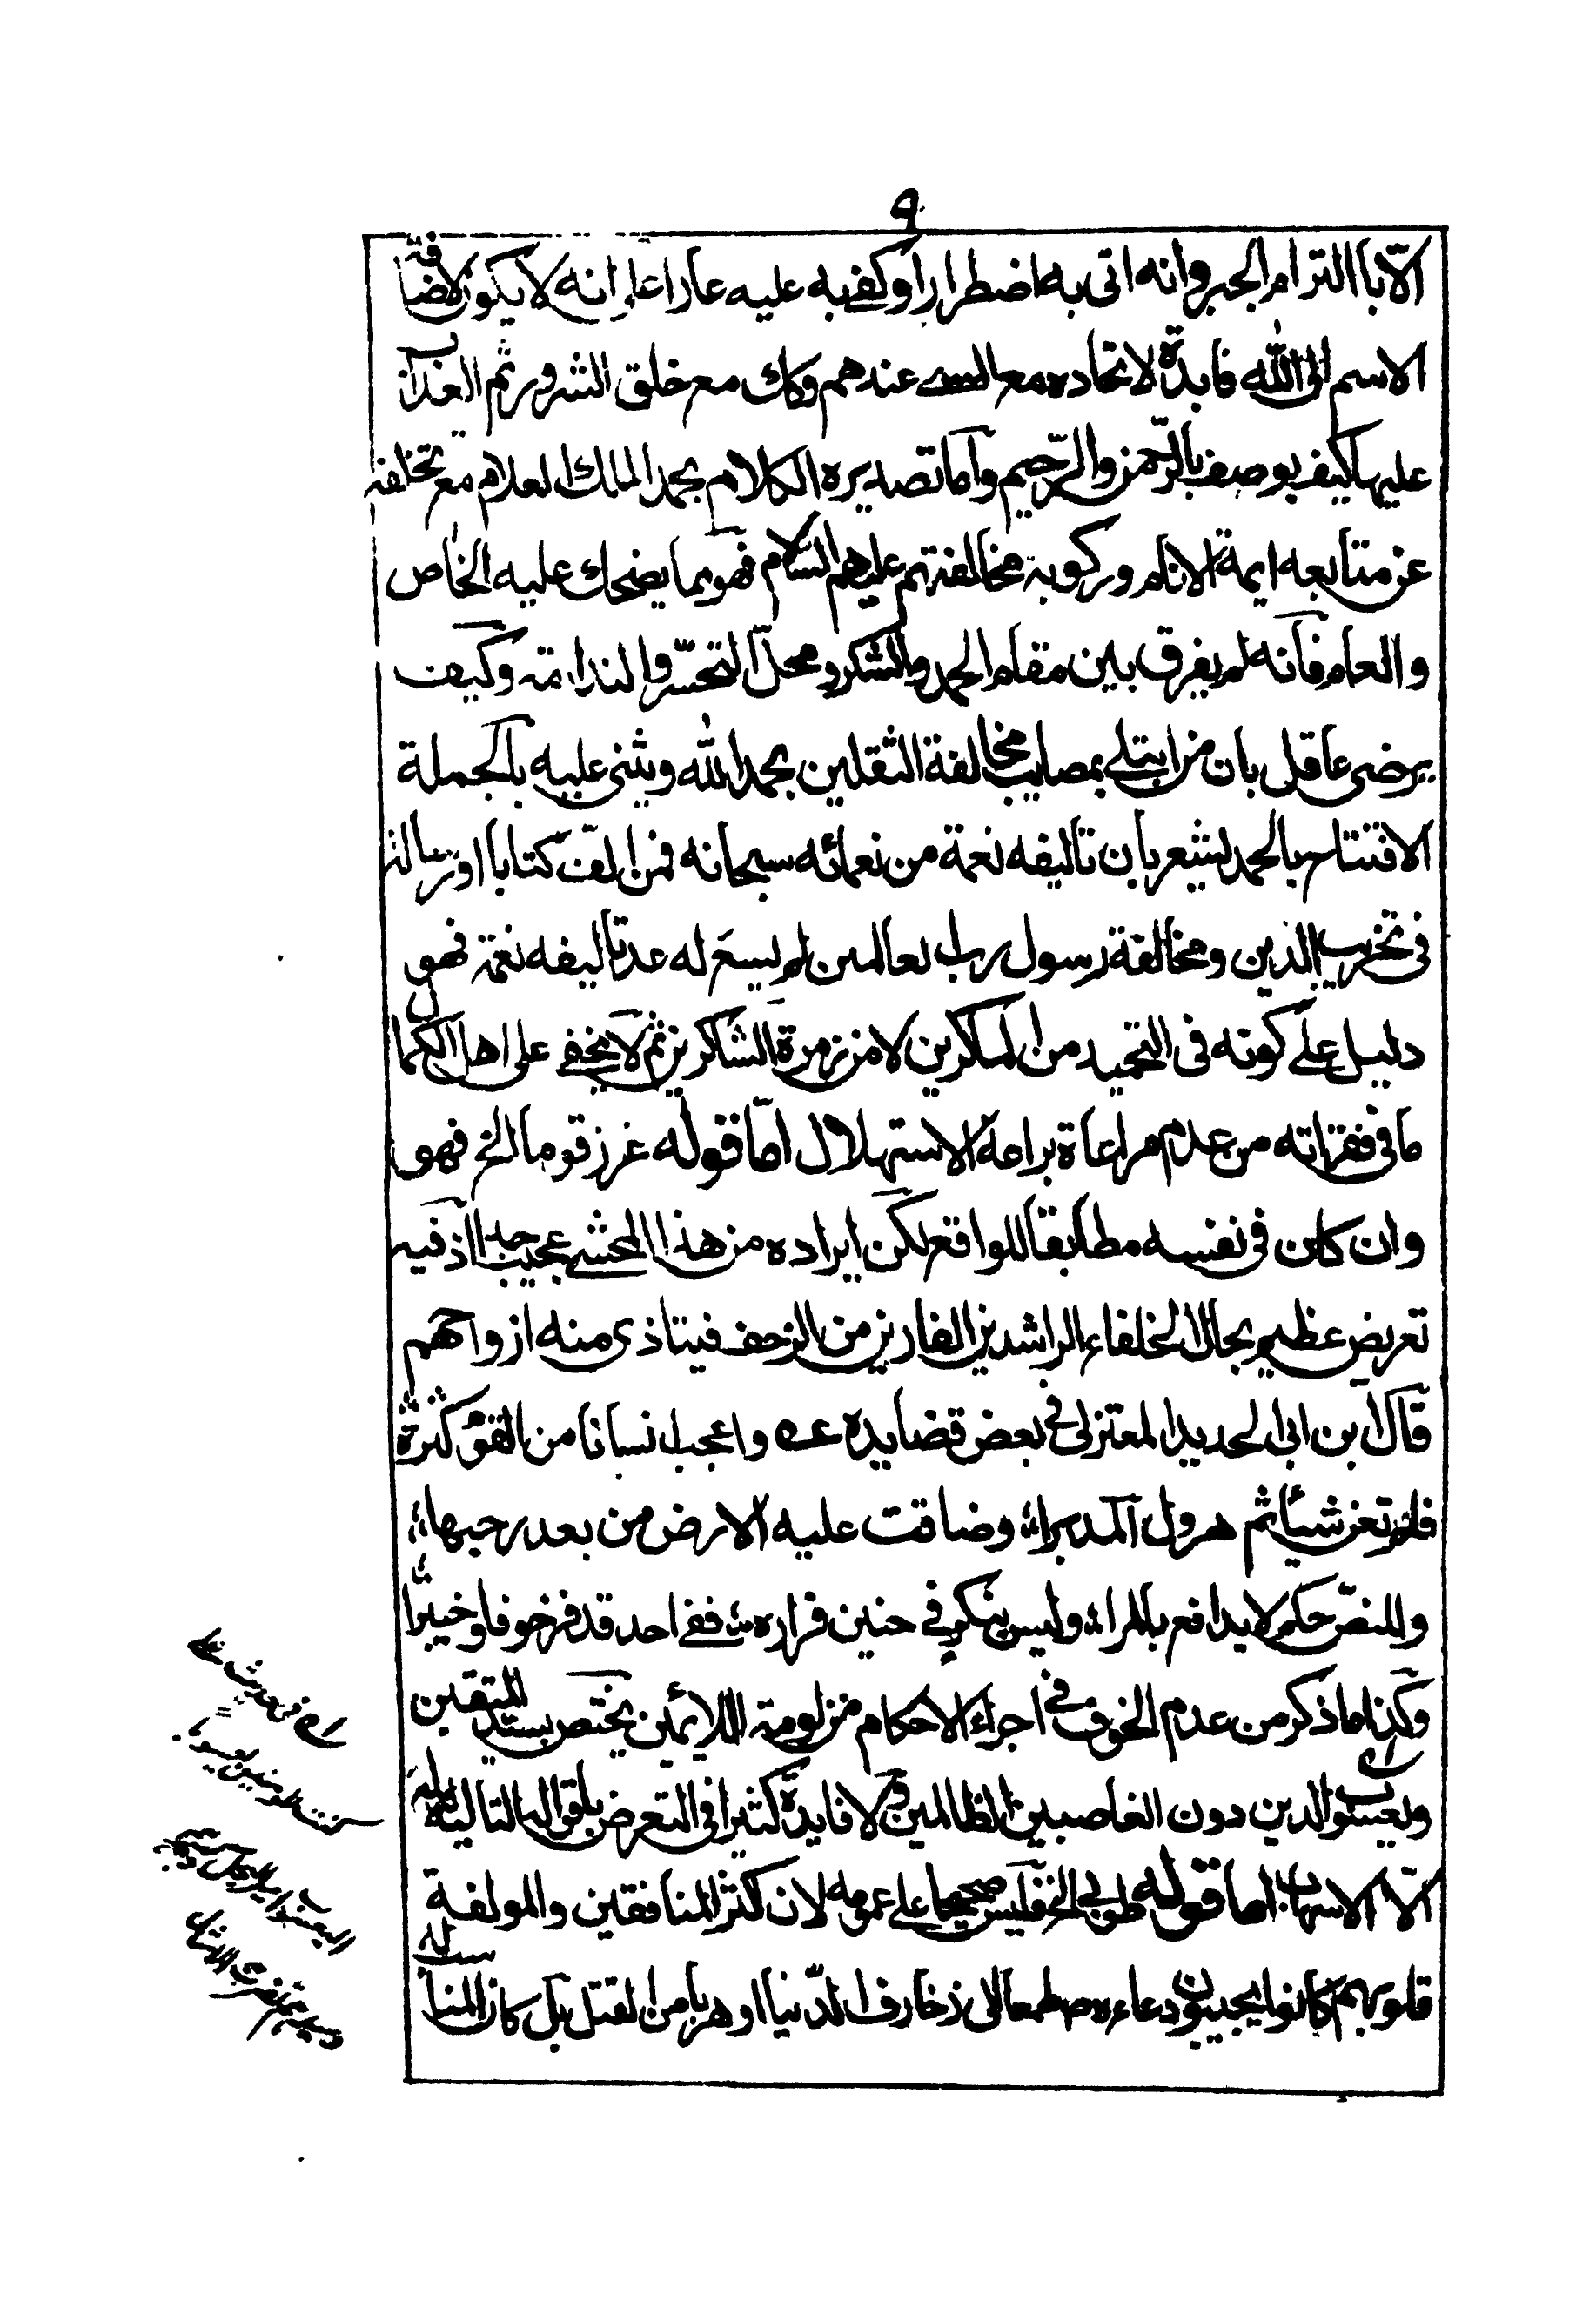 ٩
الّا باالتزام الجبر وانه اتى به اضطرارا وكفى به عليه عارا على انه لا يكون لاضافة
الاسم الى الله فايدة لاتحاده مع المسمى عندهم وكك مع خلق الشرور ثم العذاب
عليها كيف يوصف بالرّحمن والرّحيم واما تصديره الكلام بحمد الملك العلام مع تخلفه
عن متابعه ايمة الانام وركوبه مخالفتهم عليهم السّلام فهو مما يضحك عليه الخاص
والعام فانه لم يفرق بين مقام الحمد والشكر ومحلّ التحسّر والندامة وكيف
يرضى عاقل بان من ابتلى بمصايب مخالفة الثقلين بحمد الله ويثنى عليه بالجملة
الافتتاح بالحمد يشعر بان تاليفه نعمة من نعمائه سبحانه فمن الف كتابا او رسالة
فى تخريب الدين ومخالفة رسول رب لعالمين لم يسع له عد تاليفه نعمة فهو
دليل على كونه فى التحميد من الماكرين لا من زمرة الشاكرين ثم لا يخفى على اهل الكمال
ما فى فقراته من عدم مراعاة براعة الاستهلال امّا قوله غرز قوما الخ فهو
وان كان فى نفسه مطابقا للواقع لكن ايراده من هذا المحشى عجيب جدا اذ فيه
تعريض عظيم بحال الخلفاء الراشدين الفارين من الزحف فيتاذى منه ارواحهم
قال ابن ابى الحديد المعتزلى فى بعض قصايده ع واعجب انسانا من القوم كثرة
فلم تغن شيئا ثم هرول مدبرا وضاقت عليه الارض من بعد رحبها
وللنصّ حكم لا يدافع بالمراء وليس بنكر فى حنين فراره ففى احد قد فر خوفا وخيبرا
وكذا ما ذكر من عدم الخوف فى اجراء الاحكام من لومة اللائمين يختص بسيد المتقين
ويعسوب الدين دون الغاصبين الظالمين ولا فايدة كثيرا فى التعرض بباقى التالية
الّا الاسهاب اما قوله طوبى الخ فليس صحيحا على عمومه لان اكثر المنافقين والمولفة
قلوبهم كانوا يجيبون دعاءه ص طمعا الى زخارف الدّنيا او هربا من القتل بل كان المنا